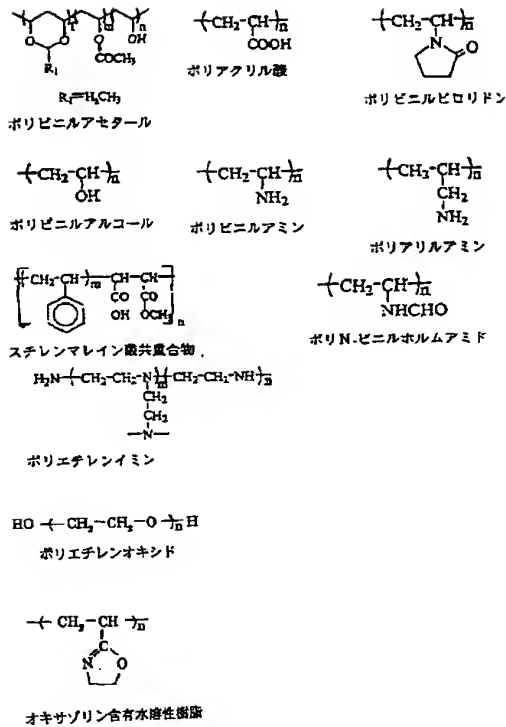 R₁ OCOCH₃ OH
R₁=H,CH₃
ポリビニルアセタール
-(CH₂-CH)n-
COOH
ポリアクリル酸
-(CH₂-CH)n-
N O
ポリビニルピロリドン
-(CH₂-CH)n-
OH
ポリビニルアルコール
-(CH₂-CH)n-
NH₂
ポリビニルアミン
-(CH₂-CH)n-
CH₂
NH₂
ポリアリルアミン
[-(CH₂-CH)m-CH-CH-]n
CO CO
OH OCH₃
スチレンマレイン酸共重合物
-(CH₂-CH)n-
NHCHO
ポリN-ビニルホルムアミド
H₂N-(CH₂-CH₂-N)m-(CH₂-CH₂-NH)n-
CH₂
CH₂
-N-
ポリエチレンイミン
HO-(CH₂-CH₂-O)n-H
ポリエチレンオキシド
-(CH₂-CH)n-
C
N O
オキサゾリン含有水溶性樹脂